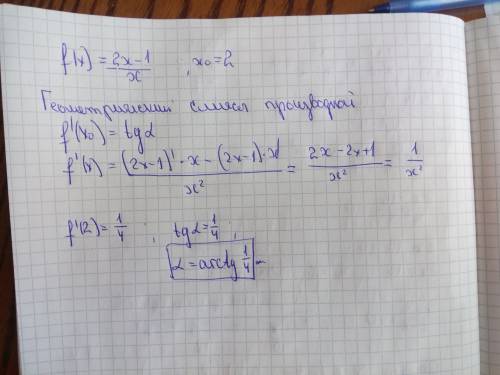 f(x) = (2x-1)/x , x₀ = 2
Геометрический смысл производной
f'(x₀) = tg α
f'(x) = ((2x-1)'·x - (2x-1)·x')/x² = (2x-2x+1)/x² = 1/x²
f'(2) = 1/4 , tg α = 1/4 ,
α = arctg 1/4